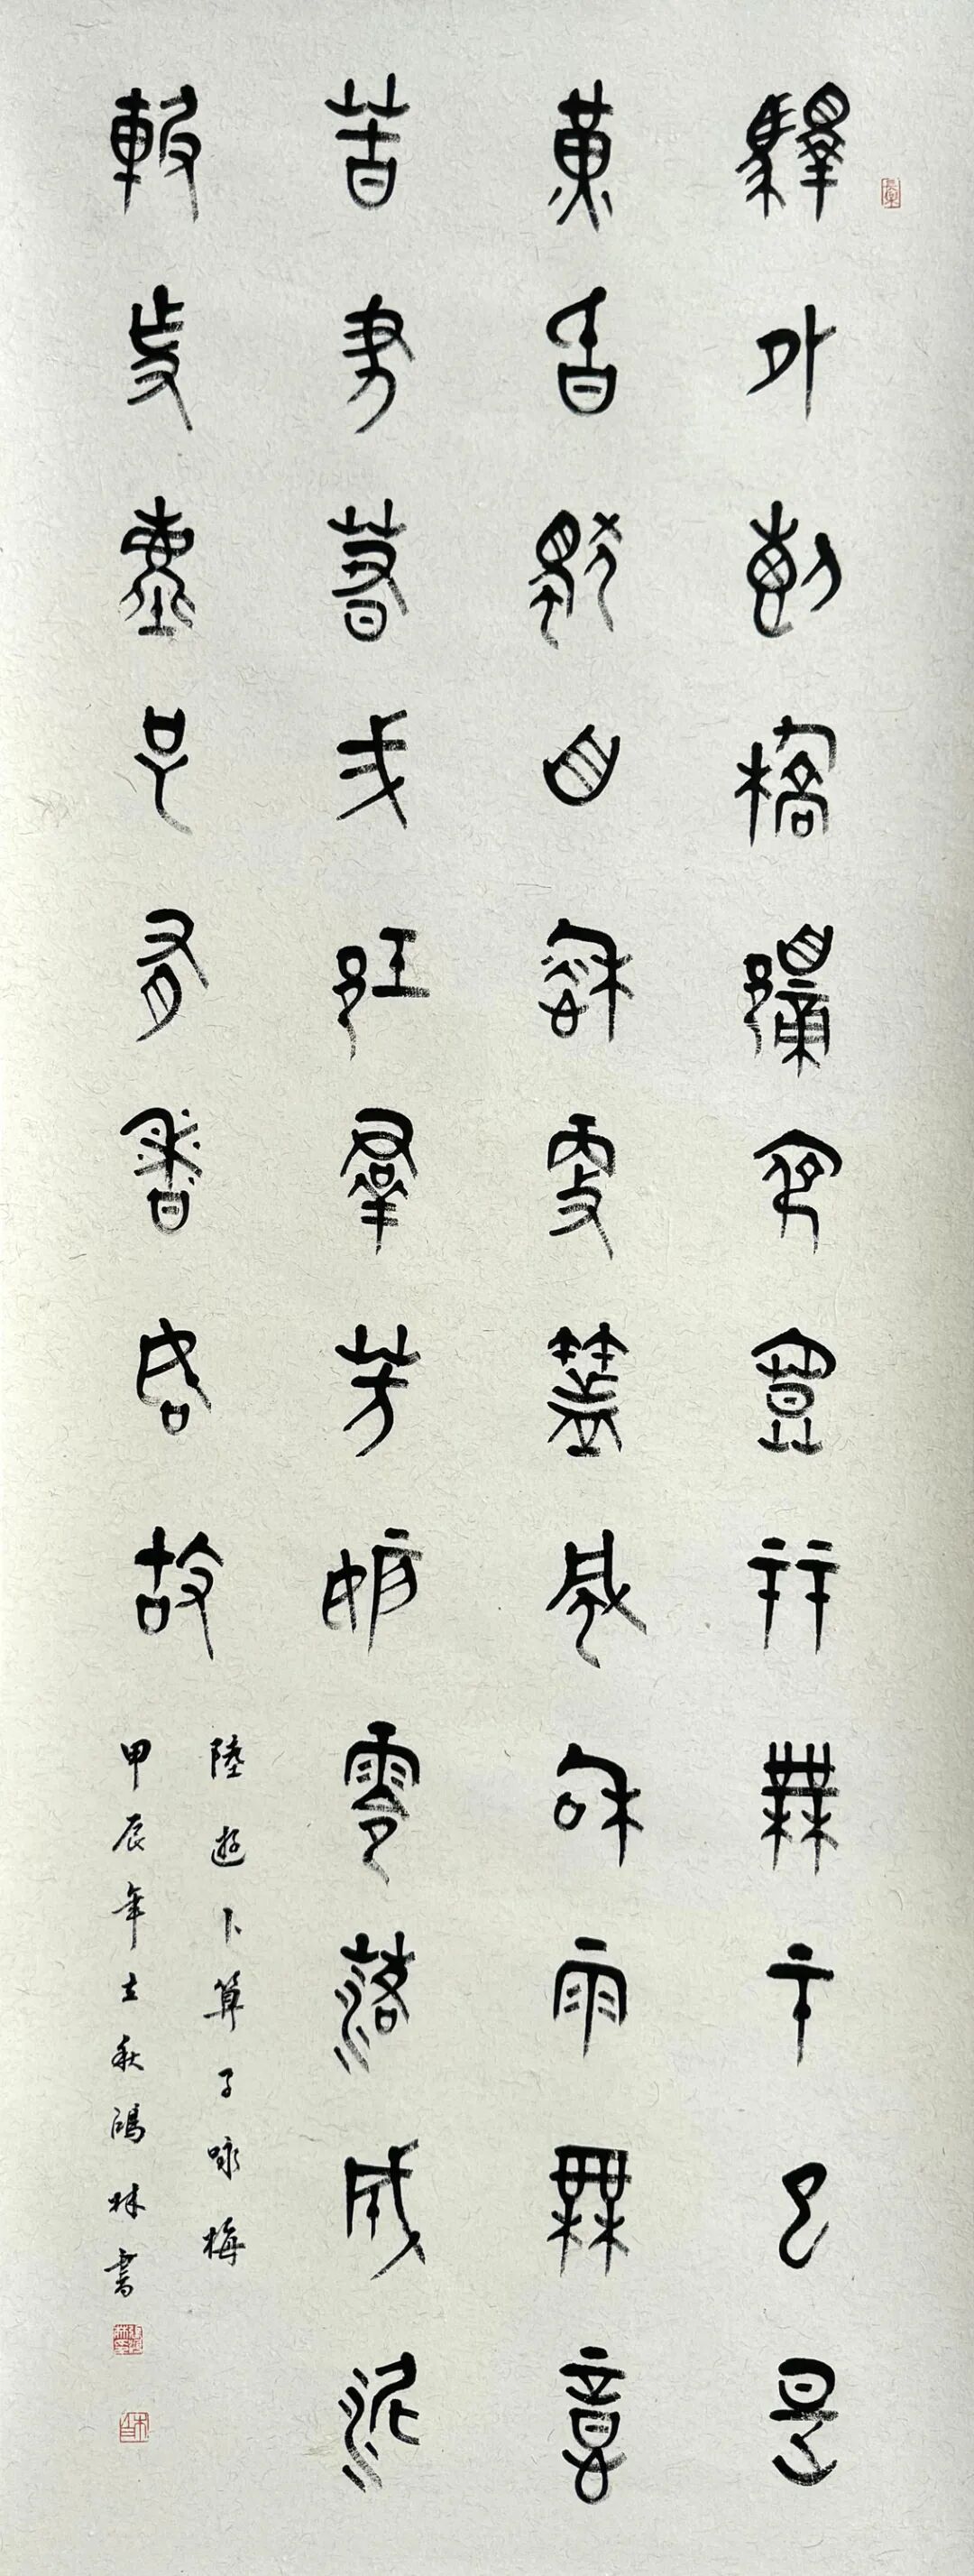 驛外斷橋邊寂寞开無主已是
黃昏獨自愁更著風和雨無意
苦爭春弌任羣芳妒零落成泥
輾作塵只有香如故
陸遊卜算子咏梅
甲辰年立秋鴻林書